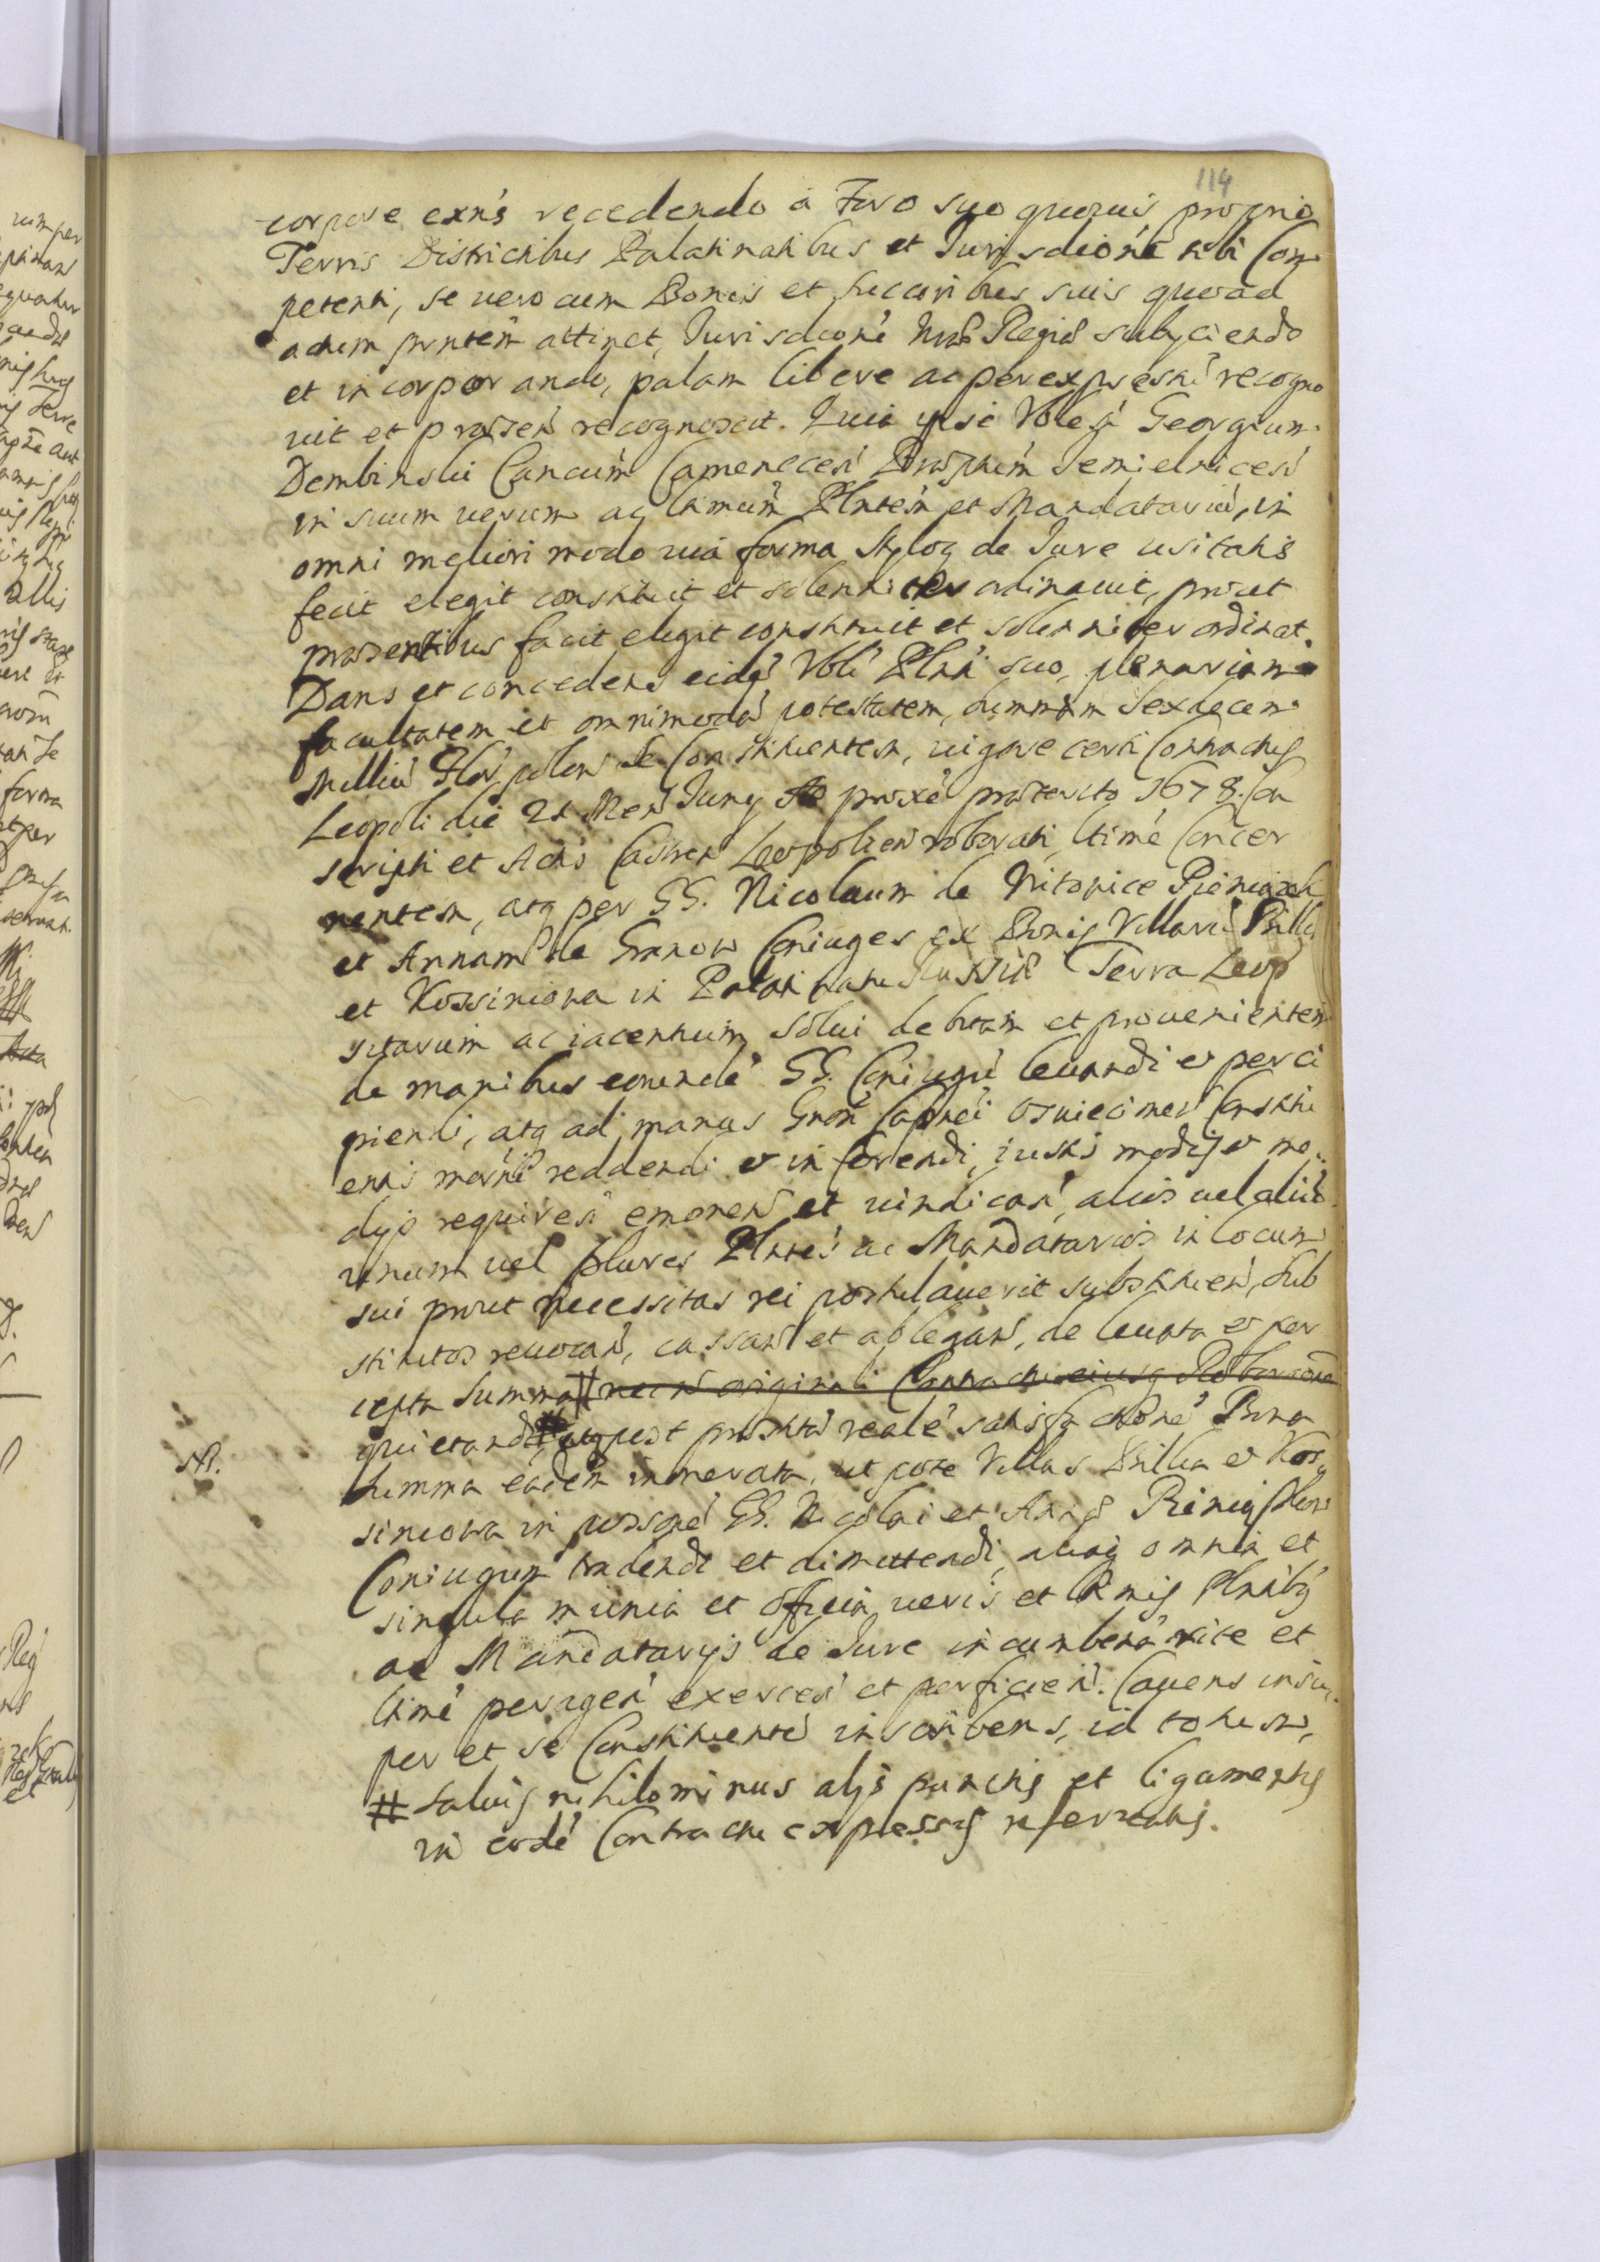 114
corpore exns recedendo a Foro suo quovis proprio
Terris Districtibus Palatinatibus et Jurisdictione sibi Com
petenti, se vero cum Bonis et Succoribus suis quoad
actum pntem attinet, Jurisdicone Regia subyciendo
et incorporando, palam libere ac per expressu recogno
vit et prosen recognoscit. Quia ipse Georgium
Dembinski Camenecen
in suum verum ac ltimum Plntem et Mandatariu, in
omni meliori modo via forma styloq de Jure usitatis
fecit elegit constituit et solenniter ordinavit, prout
praesentibus facit elegit constituit et solenniter ordinat.
Dans et concedens eidem Plnti suo, plenariam
facultatem et omnimoda potestatem, Summam Sexdecem
Milliu Flor polon Constituentem, vigore certi Contractus
Leopoli die 21 Mens Juny proxe praeterito 1678. Con
scripti et Actis Castren Leopolien roborati, ltime Concer
nentem, atq per GG. Nicolaum de Pieniazek
et Annam de Granow Coniuges ex Bonis Villaru Bilka
et Kossiniowa in Palatinatu Russiae Terra Leop
sitarum ac iacentium solui debitam et provenientem
de manibus eorunde GG. Coniugu levandi et perci
piendi, atq ad manus Osuiecimen Constitu
entis reddendi et inferendi, iustis modis et me
dys requiren et vindican, alios vel aliu
unum vel plures Plntes ac Mandatarios in locum
sui prout necessitas rei postulaverit substituen, Sub
stitutos revocan, cassan et ablegan, de levata et per
cepta Summa # originali Contractu eiusq Roboracone
quietandi, post realé satisfactione Bona
NB.
Summa eadem innerata, ut pote Villas Billka et Kos
siniowa in possone GG. Nicolai et Annae
Coniugum tradendi et dimittendi, aliaq omnia et
singula munia et officia veris et ltmis Plntibq
ac Mandatarys de Jure incumbena rite et
ltime peragen exercen et perficien. Cavens insu
per et se Constituente inscribens, id totum,
# Salvis nihilominus alys punctis et ligamentis
in eodé Contractu expressis reservatis.